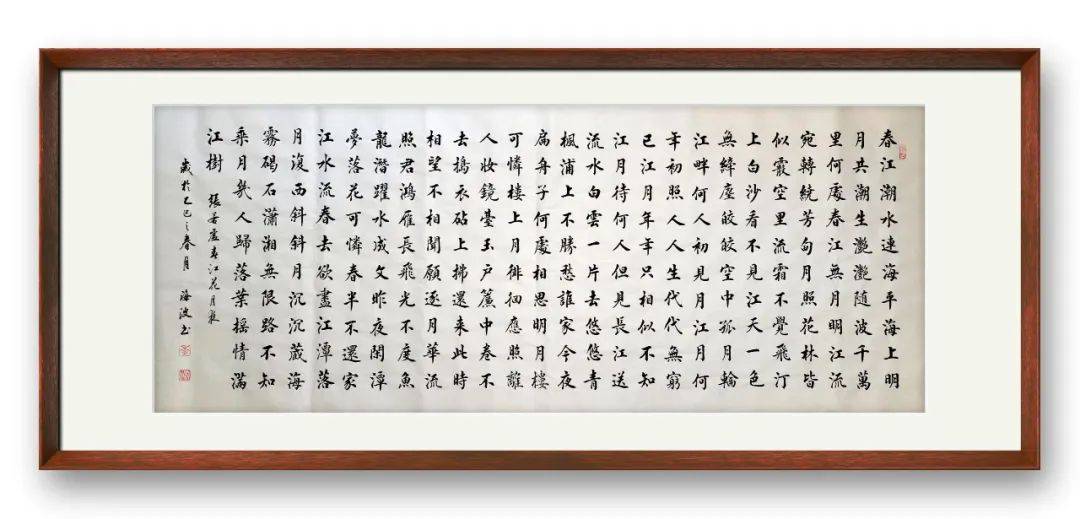 春江潮水連海平海上明
月共潮生灩灩随波千萬
里何處春江無月明江流
宛轉繞芳甸月照花林皆
似霰空里流霜不覺飛汀
上白沙看不見江天一色
無纖塵皎皎空中孤月輪
江畔何人初見月江月何
年初照人人生代代無窮
已江月年年只相似不知
江月待何人但見長江送
流水白雲一片去悠悠青
楓浦上不勝愁誰家今夜
扁舟子何處相思明月樓
可憐樓上月徘徊應照離
人妝鏡臺玉户簾中卷不
去搗衣砧上拂還来此時
相望不相聞願逐月華流
照君鴻雁長飛光不度魚
龍潛躍水成文昨夜閑潭
夢落花可憐春半不還家
江水流春去欲盡江潭落
月復西斜斜月沉沉藏海
霧碣石瀟湘無限路不知
乘月幾人歸落葉摇情滿
江樹 張若虛春江花月夜
歲於乙巳之春月 海波書